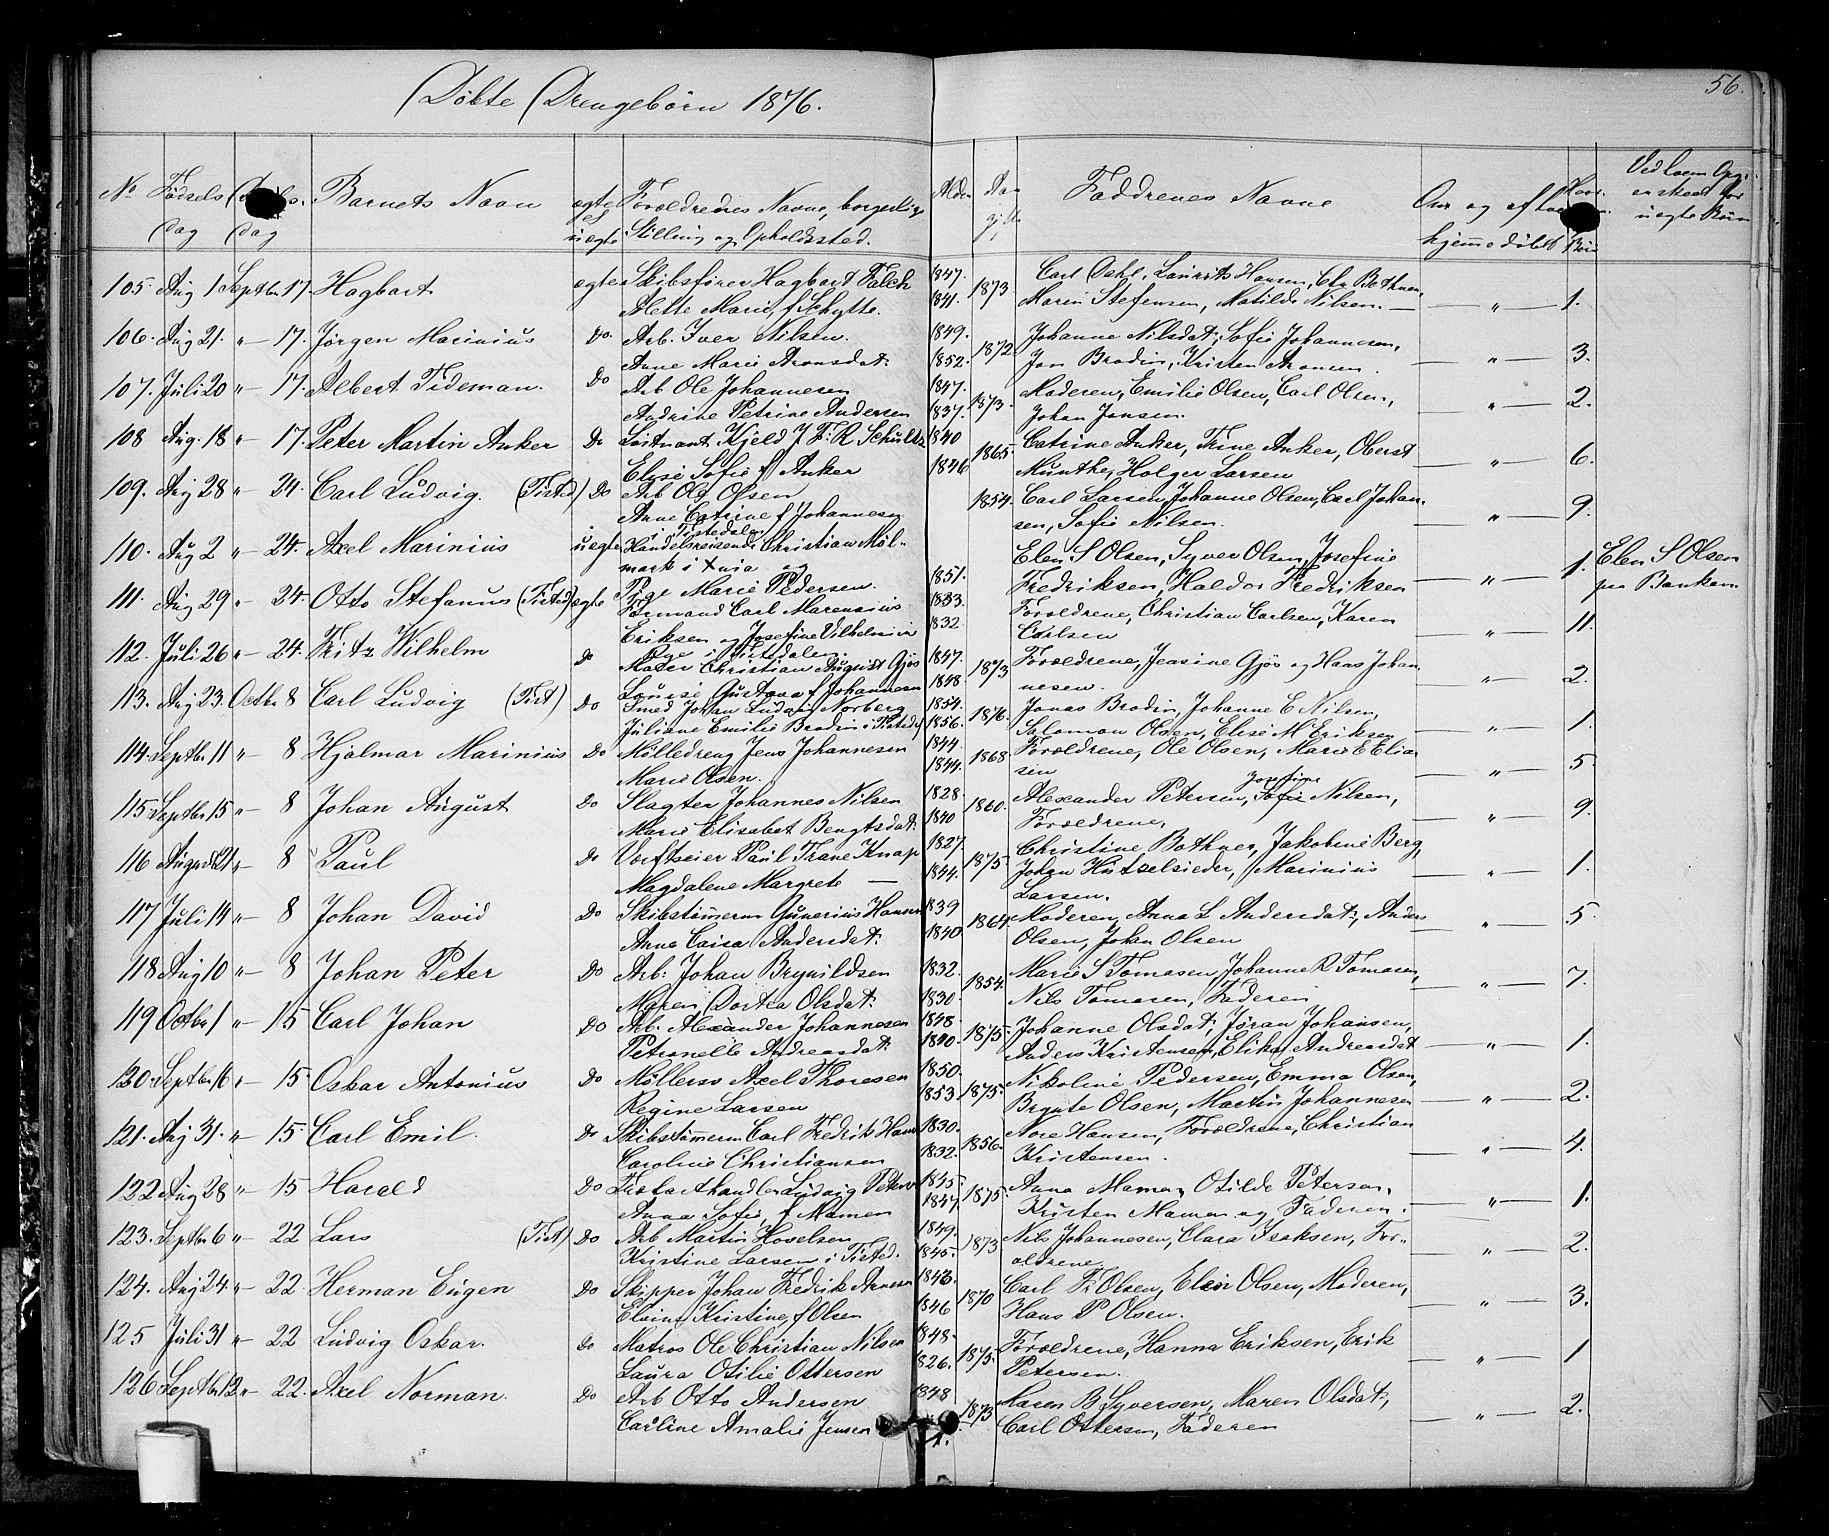 Døbte Drengebørn 1876.
56.
No Fødsels dag dag Barnets Navn ægte el uægte Forældrenes Navne, borgerlige Stilling og Opholdssted. Faddrenes Navne Om og af hjemmedøbt
105. Aug 1 Septbr 17. Hagbart ægte Skibsfører Hagbart Falch 1847. 1873 Carl Dahl, Laurits Hansen, Bothner,
Mette Marie f Schytte. 1841. Maren Stefensen, Matilde Nilsen. — " — 1.
106. Aug 21. " 17. Jørgen Marinius do. Arb. Iver Nilsen. 1849. 1872 Johanne Nilsdat; Sofie Johannesen,
Anne Marie Aronsdat: 1852. Jon Brodin, Kristen Aronsen. — " — 3.
107. Juli 20 " 17. Albert Tideman. Do Arb Ole Johannesen 1847. 1873. Moderen, Emilie Olsen, Carl Olsen,
Andrine Petrine Andersen 1837. Johan Jansen. — " — 2.
108 Aug. 18 " 17. Peter Martin Anker Do Løitnant Kjeld J F: R Schultz 1840 1865. Catrine Anker, Trine Anker, Oberst
Elise Sofie f Anker 1846 Munthe, Holger Larsen — " — 6.
109. Aug 28 " 24. Carl Ludvig. (Tisted) Do Arb Ole Olsen 1854. Carl Larsen, Johanne Olsen, Carl Johan-
Anne Catrine f Johannesen i Tistedalen sen, Sofie Nilsen. — " — 9.
110. Aug 2 " 24. Axel Marinius uægte Handelsreisende Christian Møl- Elen S Olsen, Syver Olsen, Josefine
mark i Xnia og Pige Marie Pedersen. 1851. Fredriksen, Haldor Fredriksen — " — 1. Elen S Olsen paa Banken
111. Aug 29 " 24. Otto Stefanus (Tisted) ægte Formand Carl Marensius 1833. Forældrene, Christian Carlsen, Karen
Eriksen og Josefine Vilhelmine i Tistedalen. 1832. Carlsen — " — 11.
112. Juli 26 " 24. Fritz Wilhelm Do Maler Christian August Gjøs 1847. 1873 Forældrene, Jensine Gjøs og Hans Johan-
Lovise Gustava f Johannesen 1848. nesen. — " — 2.
113. Aug 23. Octbr 8 Carl Ludvig (Tist) Do Smed Johan Ludvig Norberg 1854. 1876. Jonas Brodin, Johanne E Nilsen,
Juliane Emilie Brodin i Tisted 1856. Salomon Olsen, Elise M Eriksen — " — 1.
114. Septbr 11 " 8 Hjalmar Marinius Do Mølledreng Jens Johannesen 1844. 1868 Forældrene, Ole Olsen, Marie E Elia-
Marie Olsen. 1844. sen — " — 5.
115. Septbr 15 " 8 Johan August Do Slagter Johannes Nilsen 1828. 1860. Alexander Petersen, Josefine Sofie Nilsen,
Marie Elisabet Bengtsdat: 1840 Forældrene, — " — 9.
116 August 21 " 8 Paul Do Værftseier Paul Trane Knap 1827. 1875. Christine Bothner, Jakobine Berg,
Magdalene Margrete — 1844. Johan Hutselsieder, Marinius Larsen. — " — 1.
117 Juli 14 " 8 Johan David Do Skibstømerm Gunerius Hansen 1839 1864. Moderen, Anna L Andersdat:, Anders
Anne Caisa Andersdat: 1840. Olsen, Johan Olsen — " — 5.
118 Aug 10 " 8 Johan Peter Do Arb: Johan Brynildsen 1832. 1854. Marie S Tomasen, Johanne R Tomasen,
Maren Dortea Olsdat: 1830. Nils Tomasen, Faderen — " — 7.
119 Octbr 1 " 15 Carl Johan Do Arb: Alexander Johannesen 1848. 1875. Johanne Olsdat; Jøran Johansen,
Petronelle Andreasdat: 1840. Anders Kristensen, Elika Andreasdat — " — 1.
120. Septbr 16 " 15. Oskar Antonius Do Møllersv Axel Thoresen 1850. 1875. Nikoline Pedersen, Emma Olsen,
Regine Larsen 1853. Brynte Olsen, Martin Johannesen — " — 2.
121. Aug 31. " 15. Carl Emil. Do Skibstømerm Carl Fredrik Hans 1830. 1856. Nore Hansen, Forældrene, Christian
Caroline Christiansen 1832. Kristensen. — " — 4.
122 Aug 28 " 15 Harald Do Ludvig Peterse 1845. 1875. Anna Mamen, Otilde Petersen,
Anna Sofie, f Mamen 1847. Kristen Mamen og Faderen. — " — 1.
123. Septbr 6 " 22 Lars (Tist) Do Arb Martin Hovelsen 1849. 1873 Nils Johannesen, Clara Isaksen, For-
Kristine Larsen i Tisted. 1845. ældrene — " — 2.
124. Aug 24. " 22 Herman Eugen Do Skipper Johan Fredrik Arnesen 1843. 1870 Carl Fr Olsen, Elen Olsen, Moderen,
Elvine Kristine, f Olsen 1846 Hans P Olsen. — " — 3.
125 Juli 31 " 22 Ludvig Oskar. Do Matros Ole Christian Nilsen 1848. 1875. Forældrene, Hanna Eriksen, Erik
Laura Otilie Ottersen 1826. Petersen. — " — 1
126 Septbr 12 " 22. Axel Norman. Do Arb Otto Andersen 1848 1873 Karen B Syversen, Maren Olsdat;
Carline Amalie Jensen Carl Ottersen, Faderen — " — 2.